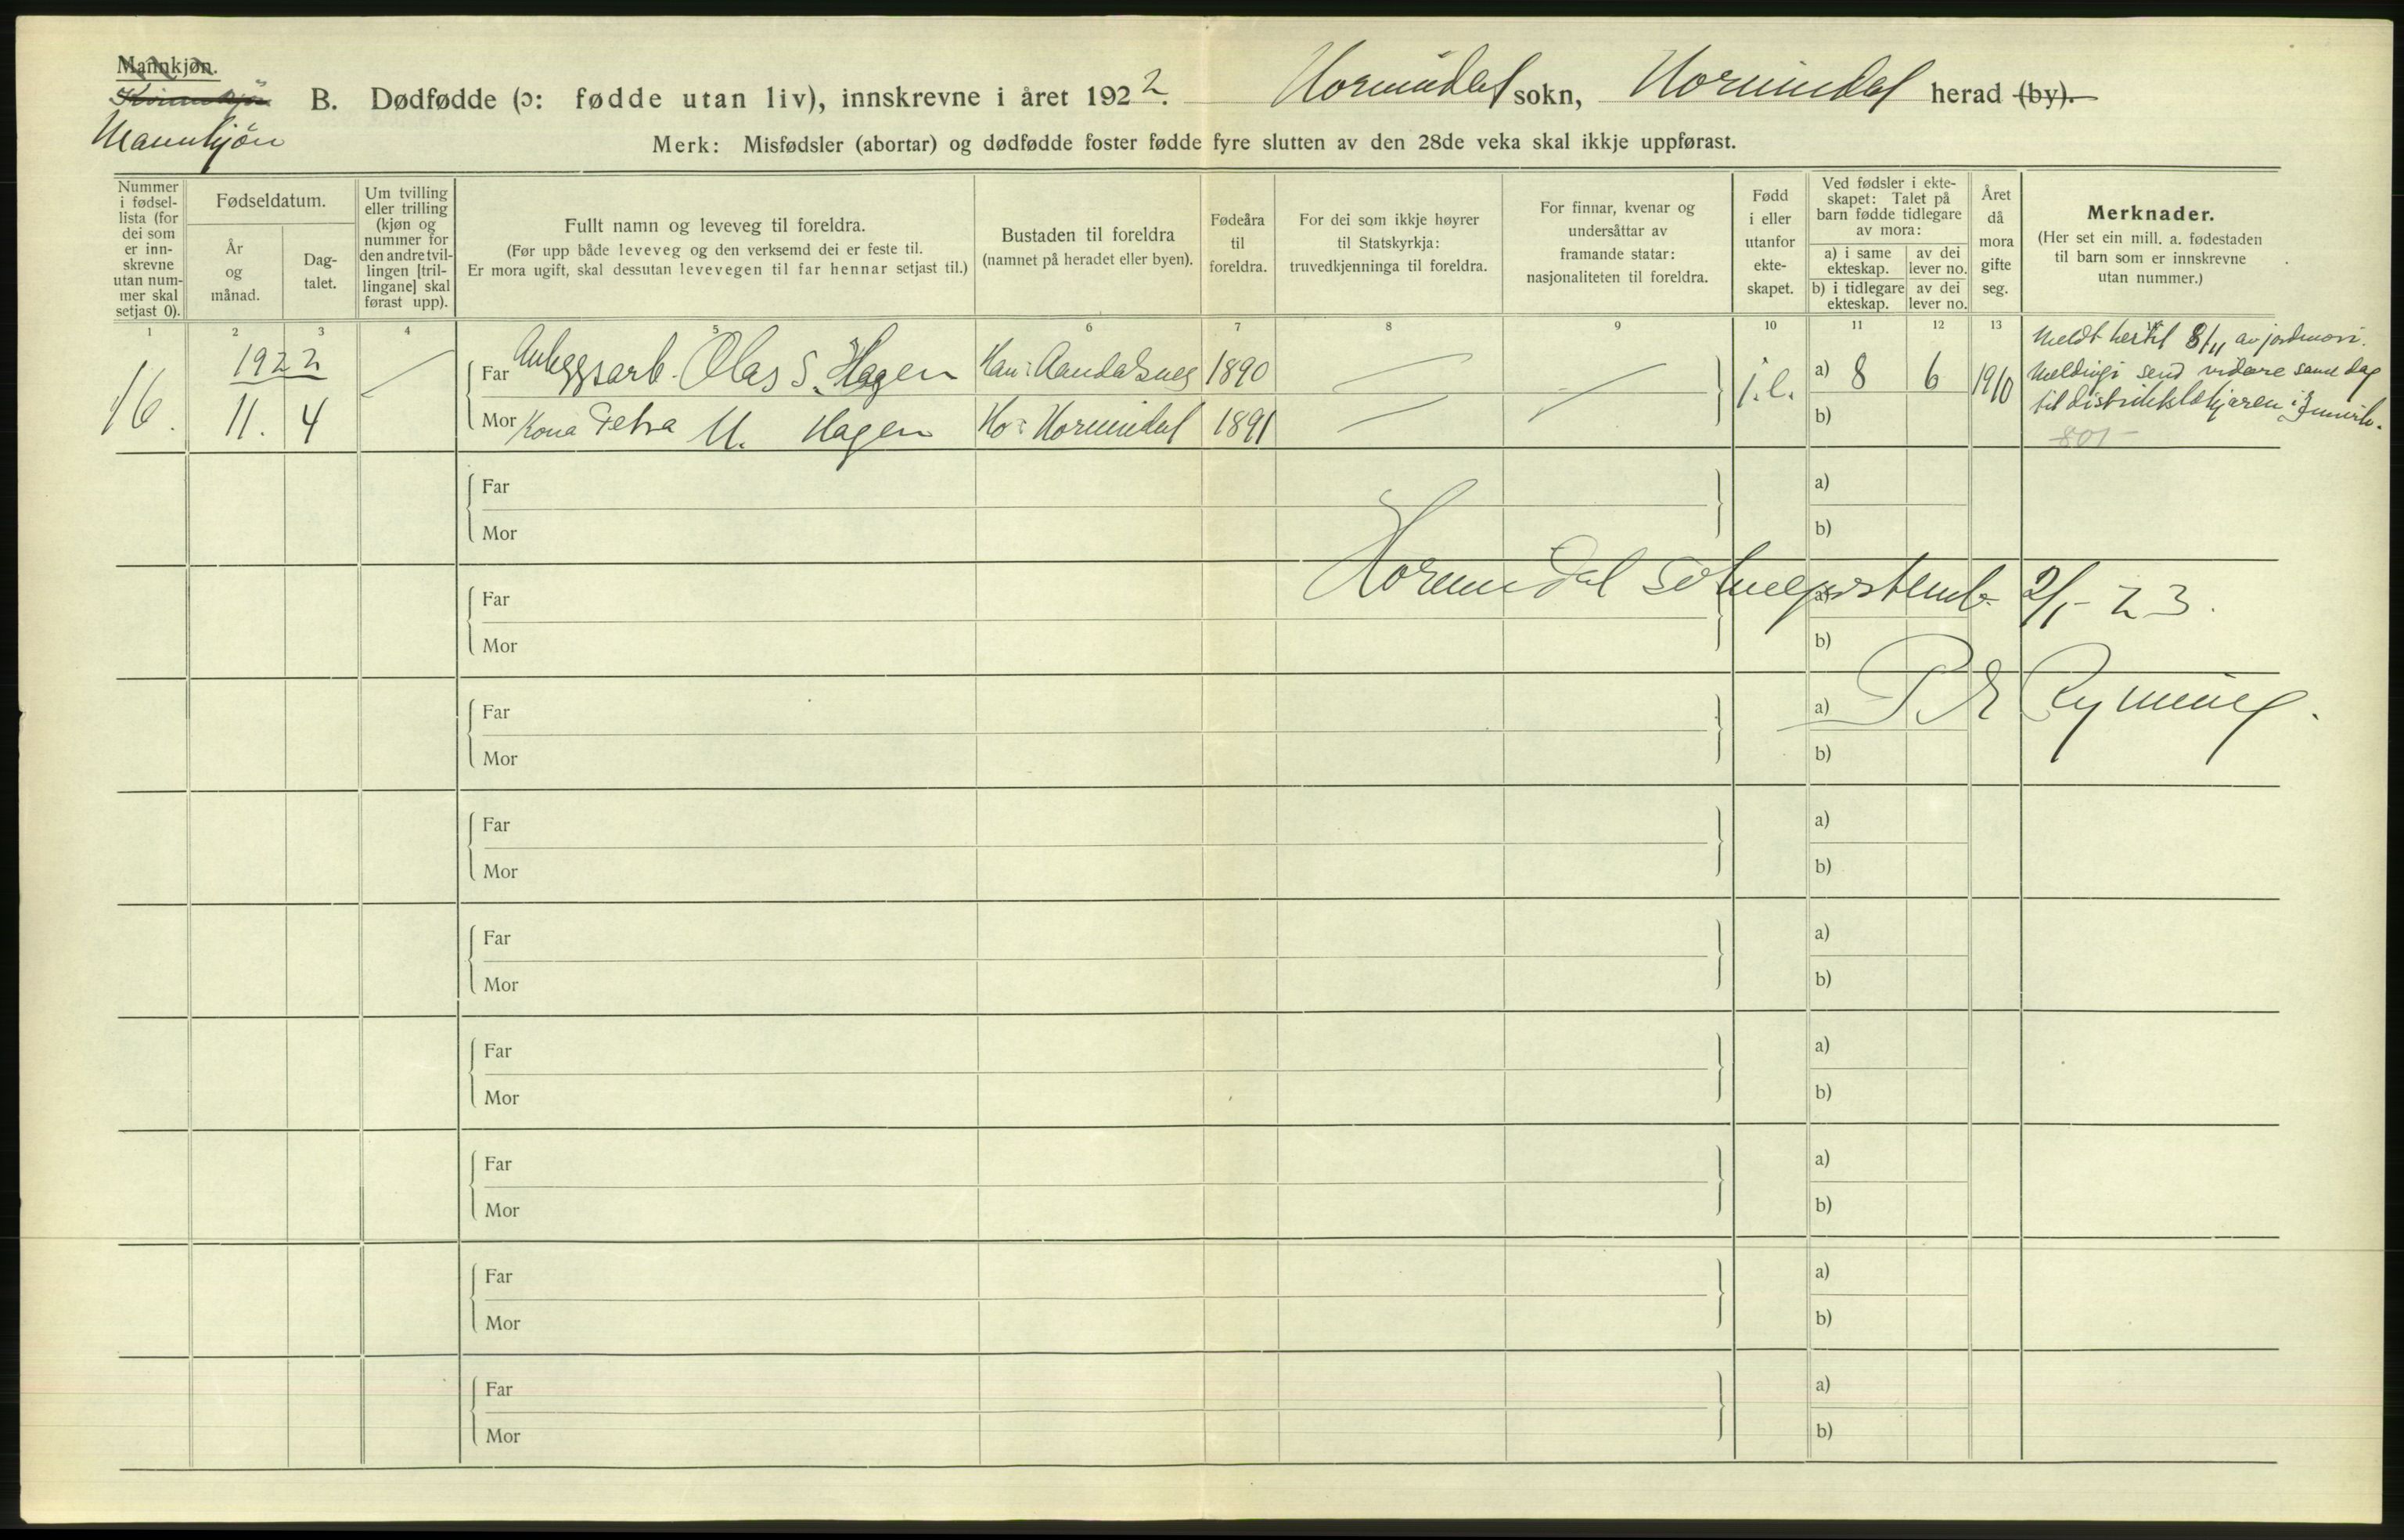 Mannkjøn.
Kvinnekjøn
Mannkjøn
B. Dødfødde (ɔ: fødde utan liv), innskrevne i året 1922. Hornindal sokn, Hornindal herad (by).
Merk: Misfødsler (abortar) og dødfødde foster fødde fyre slutten av den 28de veka skal ikkje uppførast.
Nummer i fødsel-lista (for dei som er inn-skrevne utan num-mer skal setjast 0).
Fødseldatum.
År og månad.
Dag-talet.
Um tvilling eller trilling (kjøn og nummer for den andre tvil-lingen [tril-lingane] skal førast upp).
Fullt namn og leveveg til foreldra.
(Før upp både leveveg og den verksemd dei er feste til.
Er mora ugift, skal dessutan levevegen til far hennar setjast til.)
Bustaden til foreldra
(namnet på heradet eller byen).
Fødeåra til foreldra.
For dei som ikkje høyrer til Statskyrkja: truvedkjenninga til foreldra.
For finnar, kvenar og undersåttar av framande statar: nasjonaliteten til foreldra.
Fødd i eller utanfor ekte-skapet.
Ved fødsler i ekte-skapet: Talet på barn fødde tidlegare av mora:
a) i same ekteskap.
av dei lever no.
b) i tidlegare ekteskap.
av dei lever no.
Året då mora gifte seg.
Merknader.
(Her set ein mill. a. fødestaden til barn som er innskrevne utan nummer.)
1 2 3 4 5 6 7 8 9 10 11 12 13
16. 1922 11. 4
Far Anleggsarb. Olas S. Hagen Han: Aandalsnes 1890 i.e. a) 8 6 1910
Mor Kona Petra M. Hagen Ho: Hornindal 1891 b)
Meldt hertil 8/11 av jordmori.
Meldingi send vidare same dag
til distriktslækjaren i
801
Far a)
Mor b)
Hornindal 2/1-23.
Far a)
Mor b)
P E Rymning.
Far a)
Mor b)
Far a)
Mor b)
Far a)
Mor b)
Far a)
Mor b)
Far a)
Mor b)
Far a)
Mor b)
Far a)
Mor b)